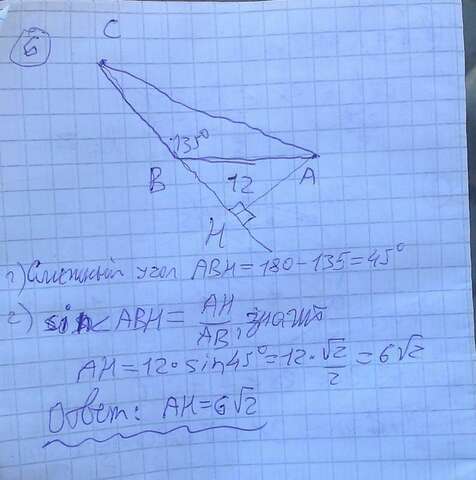 6
C
135°
B
12
A
H
1) Смежный угол ABH = 180 - 135 = 45°
2) sin< ABH = AH/AB, значит
AH = 12 · sin 45° = 12 · √2/2 = 6√2
Ответ: AH = 6√2